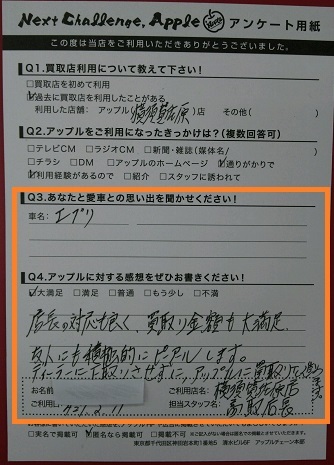 Next Challenge, Apple アンケート用紙
この度は当店をご利用いただきありがとうございました。
Q1.買取店利用について教えて下さい!
□買取店を初めて利用
☑過去に買取を利用したことがある
利用した店舗: アップル(横須賀佐原)店 その他( )
Q2.アップルをご利用になったきっかけは?(複数回答可)
□テレビCM □ラジオCM □新聞・雑誌(媒体名/ )
□チラシ □DM □アップルのホームページ ☑通りがかりで
☑利用経験があるので □紹介 □スタッフに誘われて
Q3.あなたと愛車との思い出を聞かせください!
車名: エブリ
Q4.アップルに対する感想をぜひお書きください!
☑大満足 □満足 □普通 □もう少し □不満
店長の対応も良く、買取り金額も大満足。
友人にも積極的にピアルします。
ディーラーに下取りさせずに、アップルに買取り
お名前 ご利用店名: 横須賀佐原店
ご利用日 担当スタッフ名: 店長
□実名で掲載可 ☑匿名なら掲載可 □掲載不可
東京都千代田区神田岩本町1番地5 清水ビル5F アップルチェーン本部